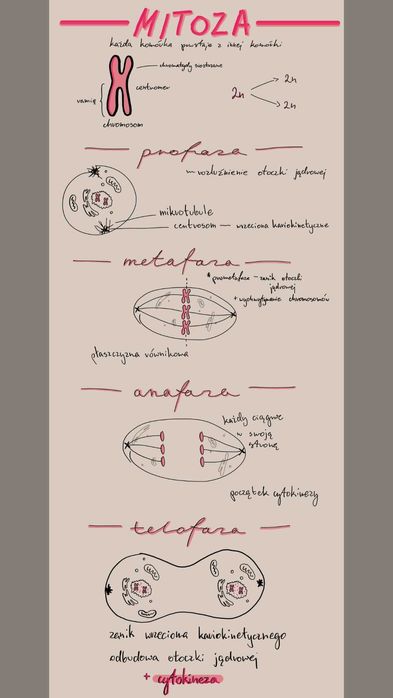 MITOZA
każda komórka powstaje z innej komórki
chromatydy siostrzane
centromer
ramię
chromosom
2n
2n
2n
profaza
rozluźnienie otoczki jądrowej
mikrotubule
centrosom — wrzeciona kariokinetyczne
metafaza
* prometafaza - zanik otoczki
jądrowej
+ wychwytywanie chromosomów
płaszczyzna równikowa
anafaza
każdy ciągnie
w swoją
stronę
początek cytokinezy
telofaza
zanik wrzeciona kariokinetycznego
odbudowa otoczki jądrowej
+ cytokineza